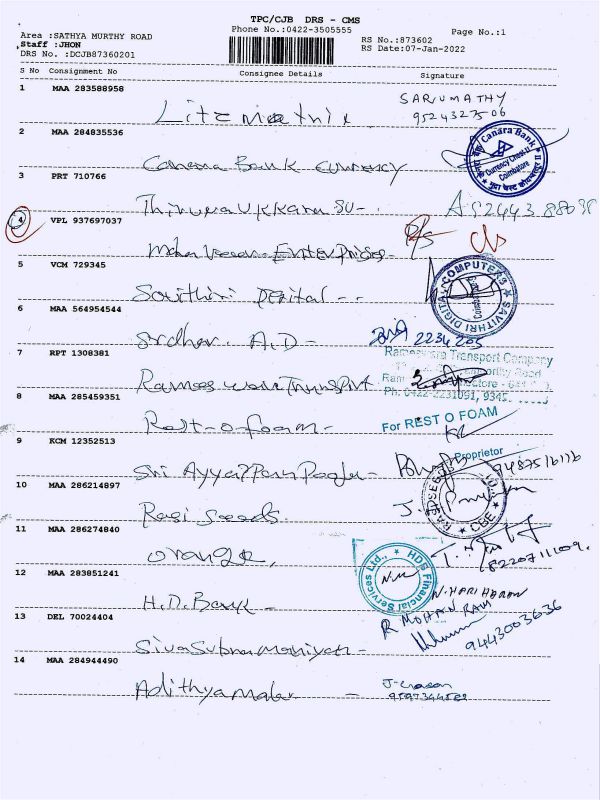 TPC/CJB DRS - CMS
Phone No.:0422-3505555
Page No.:1
Area :SATHYA MURTHY ROAD
RS No.:873602
Staff :JHON
RS Date:07-Jan-2022
DRS No. :DCJB87360201
S No Consignment No Consignee Details Signature
1 MAA 283588958
SARJUMATHY
9524327506
2 MAA 284835536
Canara Bank
Currency Chest-II
Coimbatore
Canara Bank Currency
3 PRT 710766
4 VPL 937697037
Enterprises
5 VCM 729345
SAVITHRI DIGITAL COMPUTERS
Coimbatore
Savithiri Digital --
6 MAA 564954544
Sridhar. A.D-
2234205
7 RPT 1308381
Rameswara Transport Company
Rameswara Transport
Ph: 0422-2231091, 9345.
8 MAA 285459351
For REST O FOAM
Rest-o-foam-
Proprietor
9 KCM 12352513
Sri Ayyappan Pooja-
10 MAA 286214897
RASI SEEDS
CBE
Rasi seeds.
11 MAA 286274840
8220711109.
orange,
12 MAA 283851241
HDB Financial Services Ltd.,
N. HARI HARAN
H.D. Bank-
R MOHAN RAM
13 DEL 70024404
9443003636
Siva Subramaniyan-
14 MAA 284944490
Adithya -